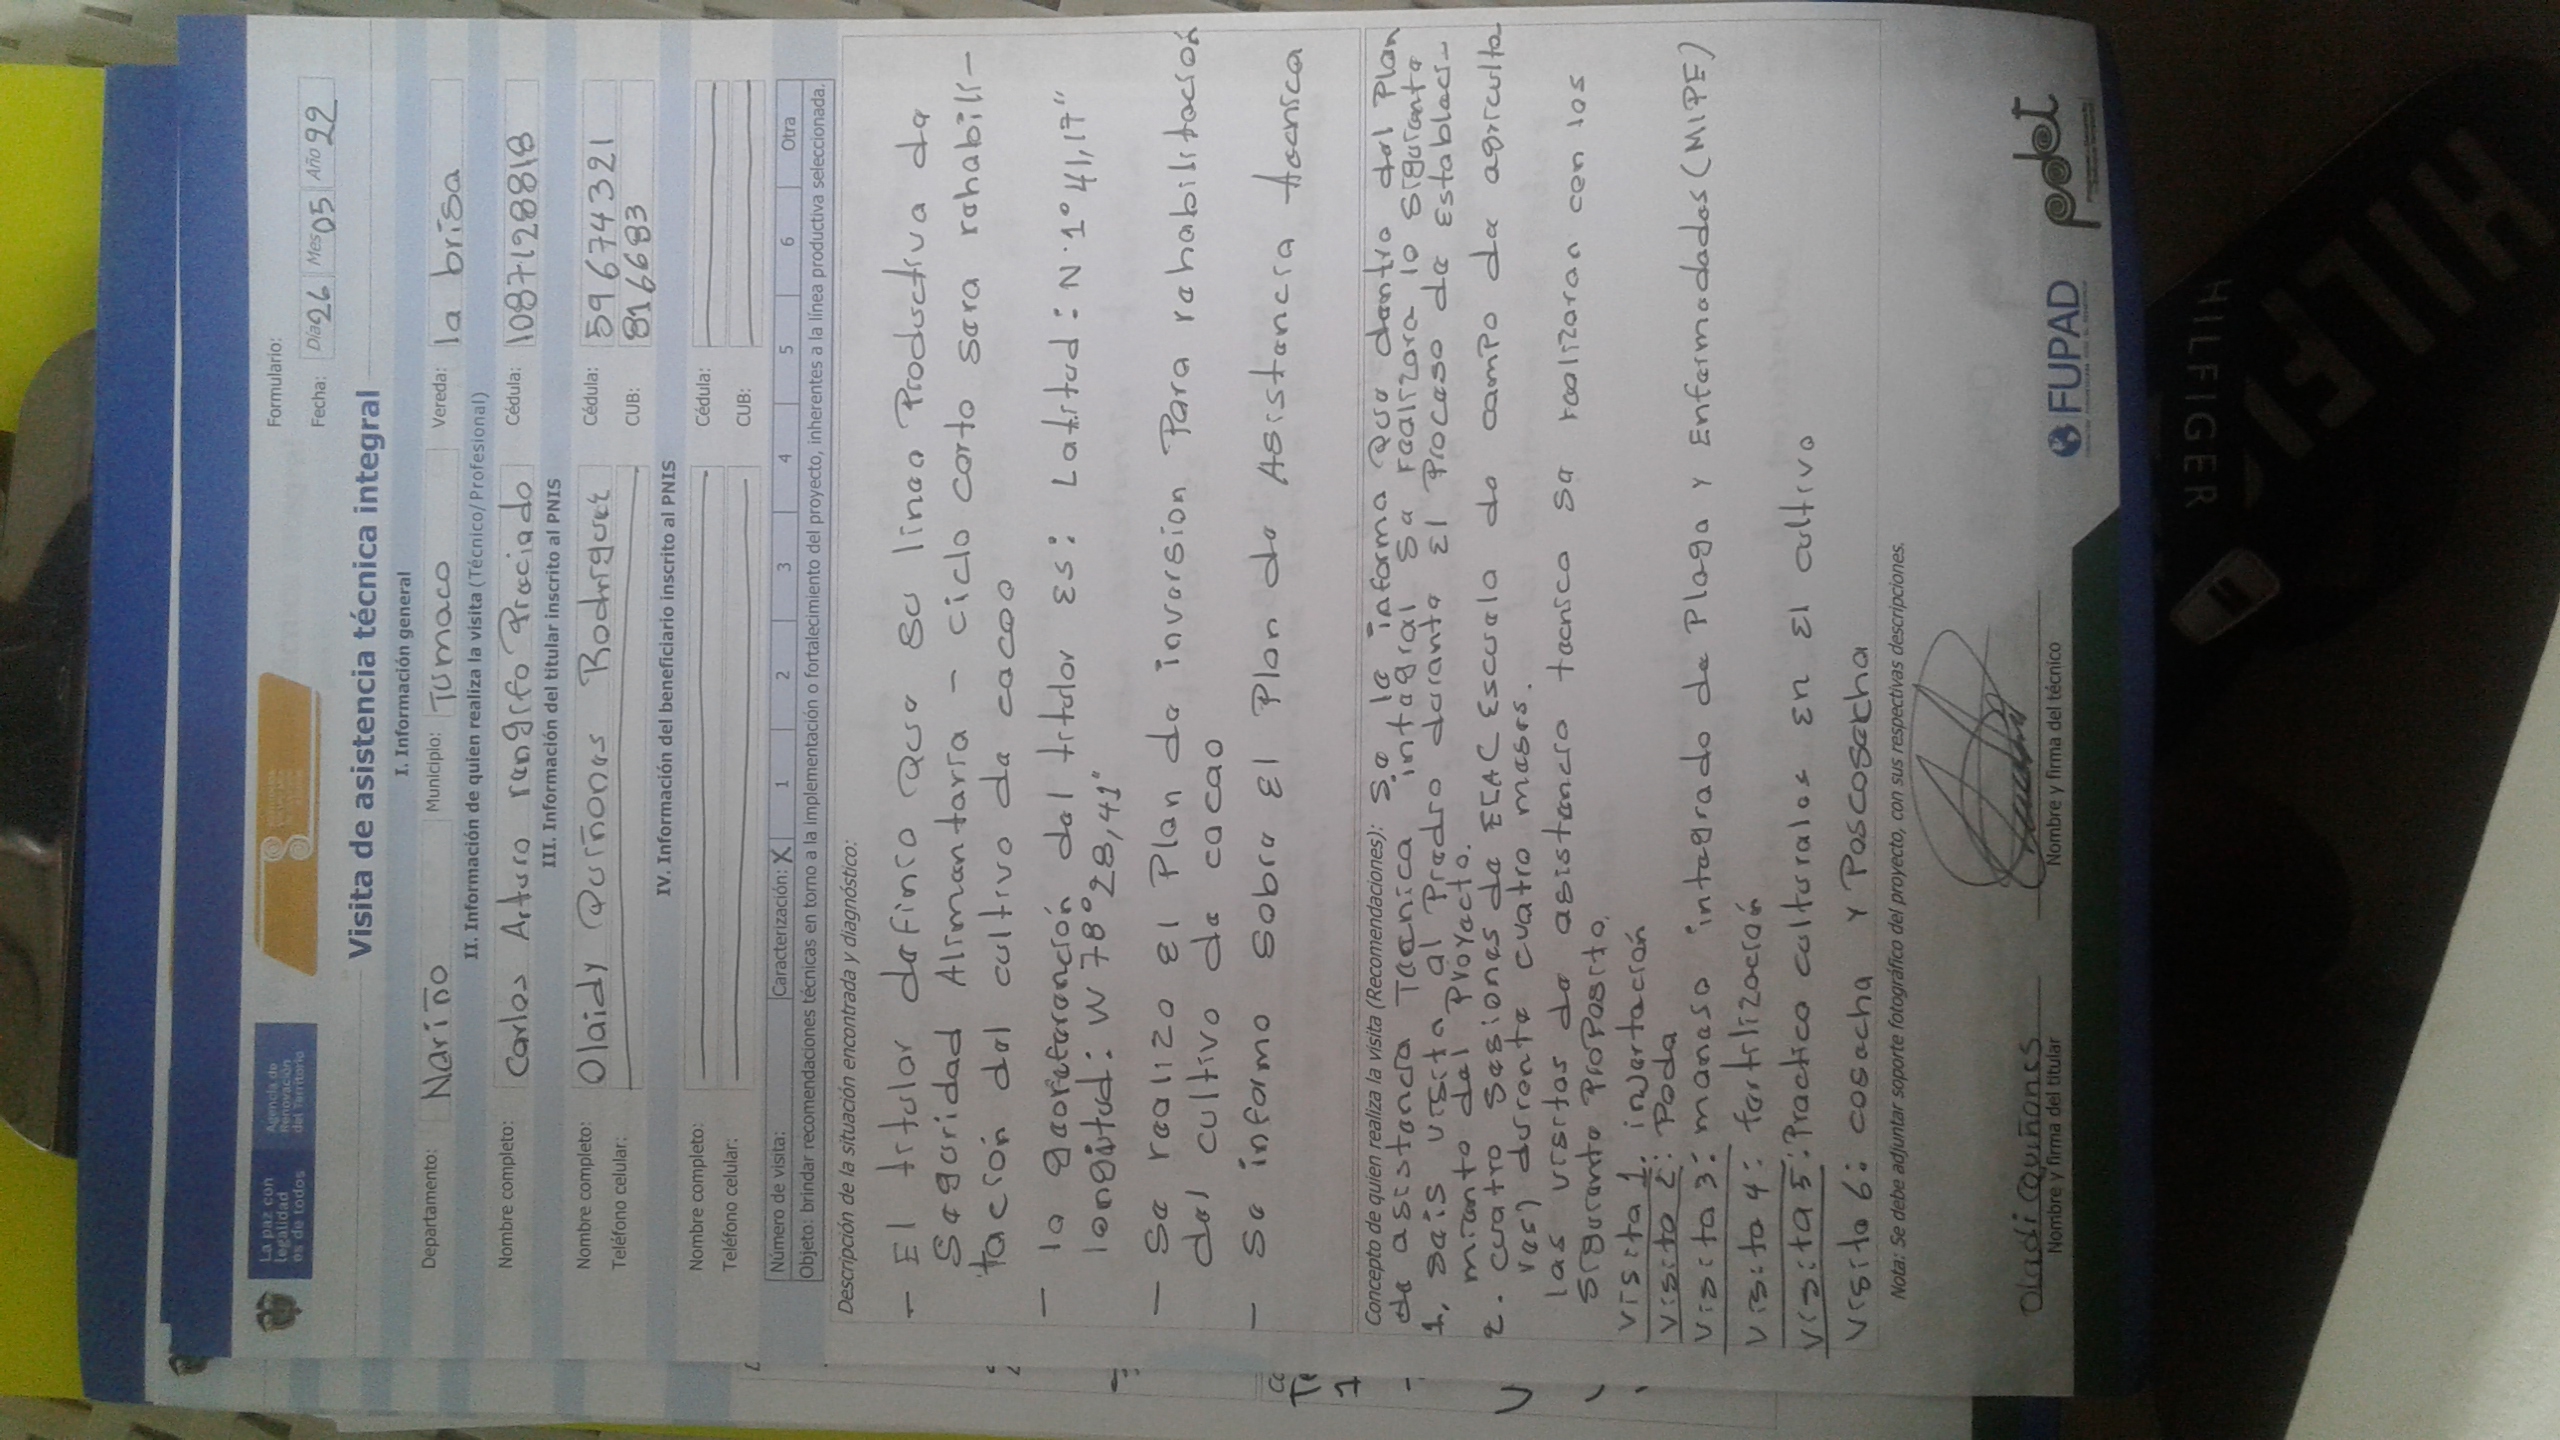 La paz con
legalidad
es de todos
Agencia de
Renovación
del Territorio
Formulario:
Fecha: Día 26 Mes 05 Año 22
Visita de asistencia técnica integral
I. Información general
Departamento: Nariño Municipio: Tumaco Vereda: la brisa
II. Información de quien realiza la visita (Técnico/Profesional)
Nombre completo: Carlos Arturo rengifo Preciado Cédula: 1087128818
III. Información del titular inscrito al PNIS
Nombre completo: Olaidy Quiñones Rodriguez Cédula: 59674321
Teléfono celular: CUB: 816683
IV. Información del beneficiario inscrito al PNIS
Nombre completo: Cédula:
Teléfono celular: CUB:
Número de visita: Caracterización: X 1 2 3 4 5 6 Otra
Objeto: brindar recomendaciones técnicas en torno a la implementación o fortalecimiento del proyecto, inherentes a la línea productiva seleccionada.
Descripción de la situación encontrada y diagnóstico:
- El titular definio que su linea Productiva de
Seguridad Alimentaria - ciclo corto sera rehabili-
tación del cultivo de cacao
- la georeferención del titular Es: Latitud: N·1° 41,17"
longitud: W 78° 28,41"
- Se realizo El Plan de inversion Para rehabilitación
del cultivo de cacao
- Se informo sobre El Plan de Asistencia tecnica
Concepto de quien realiza la visita (Recomendaciones): Se le informo que dentro del Plan
de asistencia Tecnica integral se realizara lo siguiente
1. seis visita al Predio durante El Proceso de Establaci-
miento del Proyecto.
2. cuatro sesiones de ECAC Escuela de campo de agriculto
ves) durente cuatro meses.
las visitas de asistencia tecnico se realizaran con los
siguiente ProPosito.
visita 1: injertación
visita 2: Poda
visita 3: manejo integrado de Plaga y Enfermedades (MIPE)
visita 4: fertilización
visita 5: Practica culturales En El cultivo
visita 6: cosecha y Poscosecha
Nota: Se debe adjuntar soporte fotográfico del proyecto, con sus respectivas descripciones.
Oladi Quiñones
Nombre y firma del titular
Nombre y firma del técnico
FUPAD
pdet
HILFIGER